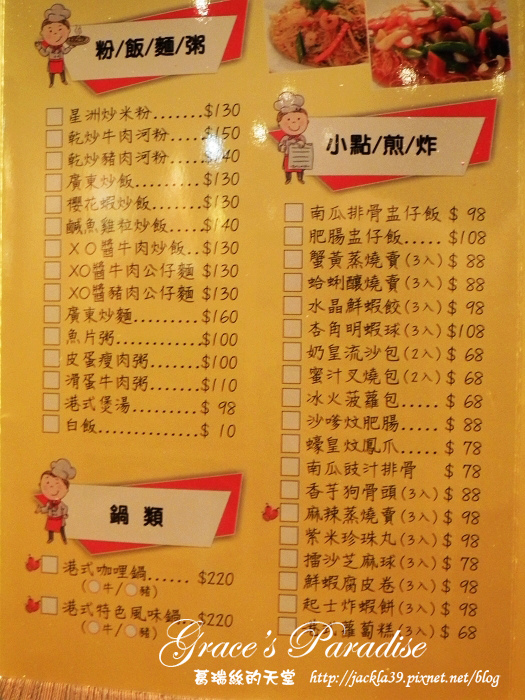 粉/飯/麵/粥
星洲炒米粉.......$130
乾炒牛肉河粉......$150
乾炒豬肉河粉......$140
廣東炒飯..........$130
櫻花蝦炒飯.......$130
鹹魚雞粒炒飯.....$140
XO醬牛肉炒飯..$130
XO醬牛肉公仔麵 $130
XO醬豬肉公仔麵 $130
廣東炒麵..........$160
魚片粥............$100
皮蛋瘦肉粥........$100
滑蛋牛肉粥........$110
港式煲湯..........$ 98
白飯..............$ 10
鍋 類
港式咖哩鍋......$220
(○牛/○豬)
港式特色風味鍋..$220
(○牛/○豬)
小點/煎/炸
南瓜排骨盅仔飯 $ 98
肥腸盅仔飯.....$108
蟹黃蒸燒賣(3入) $ 88
蛤蜊釀燒賣(3入) $ 88
水晶鮮蝦餃(3入) $ 98
杏角明蝦球(3入) $108
奶皇流沙包(2入) $ 68
蜜汁叉燒包(2入) $ 68
冰火菠蘿包..... $ 68
沙嗲炆肥腸..... $ 88
蠔皇炆鳳爪..... $ 78
南瓜豉汁排骨 $ 78
香芋狗骨頭(3入) $ 88
麻辣蒸燒賣(3入) $ 98
紫米珍珠丸(3入) $ 98
擂沙芝麻球(3入) $ 78
鮮蝦腐皮卷(3入) $ 98
起士炸蝦餅(3入) $ 98
蘿蔔糕(3入) $ 68
Grace's Paradise
葛瑞絲的天堂 http://jackla39.pixnet.net/blog